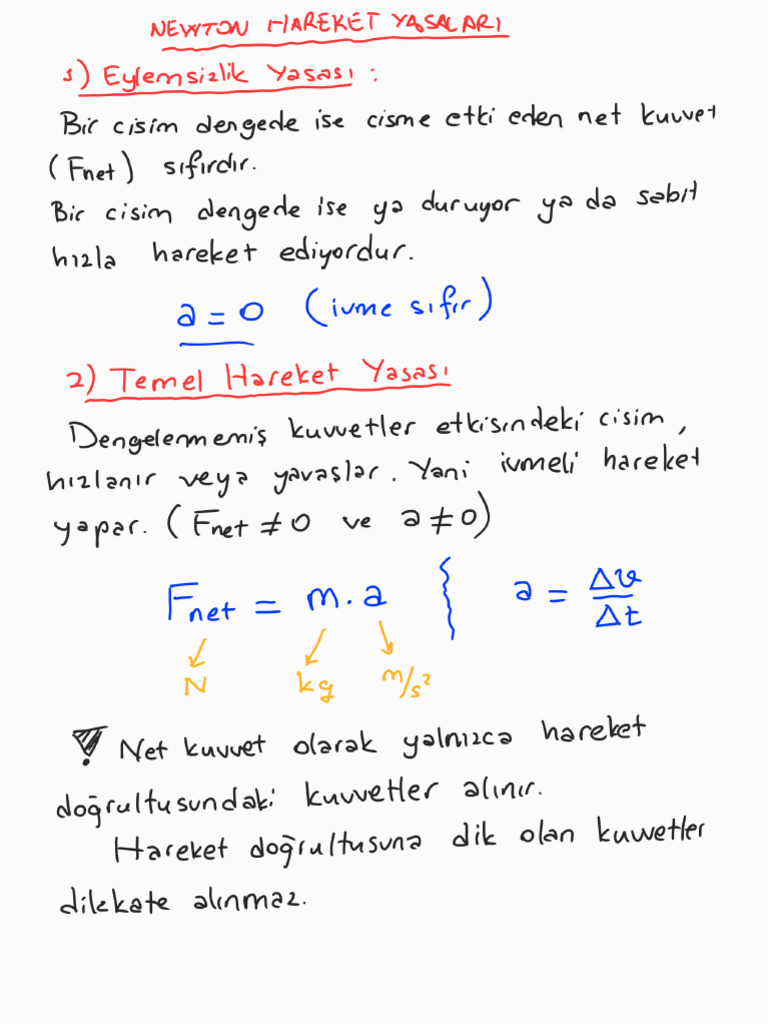 NEWTON HAREKET YASALARI
1) Eylemsizlik Yasası :
Bir cisim dengede ise cisme etki eden net kuvvet
(Fnet) sıfırdır.
Bir cisim dengede ise ya duruyor ya da sabit
hızla hareket ediyordur.
a = 0 (ivme sıfır)
2) Temel Hareket Yasası
Dengelenmemiş kuvvetler etkisindeki cisim,
hızlanır veya yavaşlar. Yani ivmeli hareket
yapar. (Fnet ≠ 0 ve a ≠ 0)
Fnet = m.a a = Δv/Δt
N kg m/s²
! Net kuvvet olarak yalnızca hareket
doğrultusundaki kuvvetler alınır.
Hareket doğrultusuna dik olan kuvvetler
dikkate alınmaz.